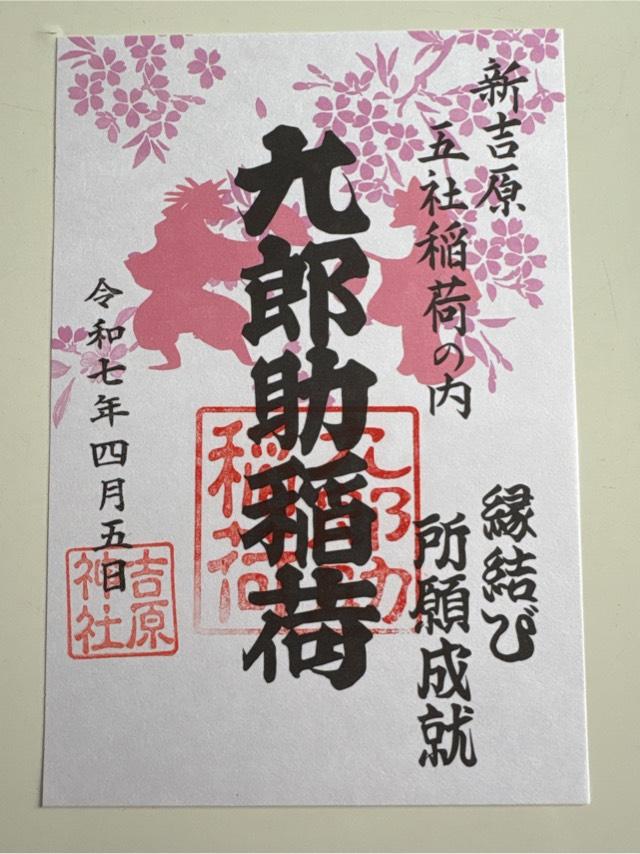 新吉原
五社稲荷の内
縁結び
所願成就
九郎助稲荷
九郎助
稲荷
令和七年四月五日
吉原
神社